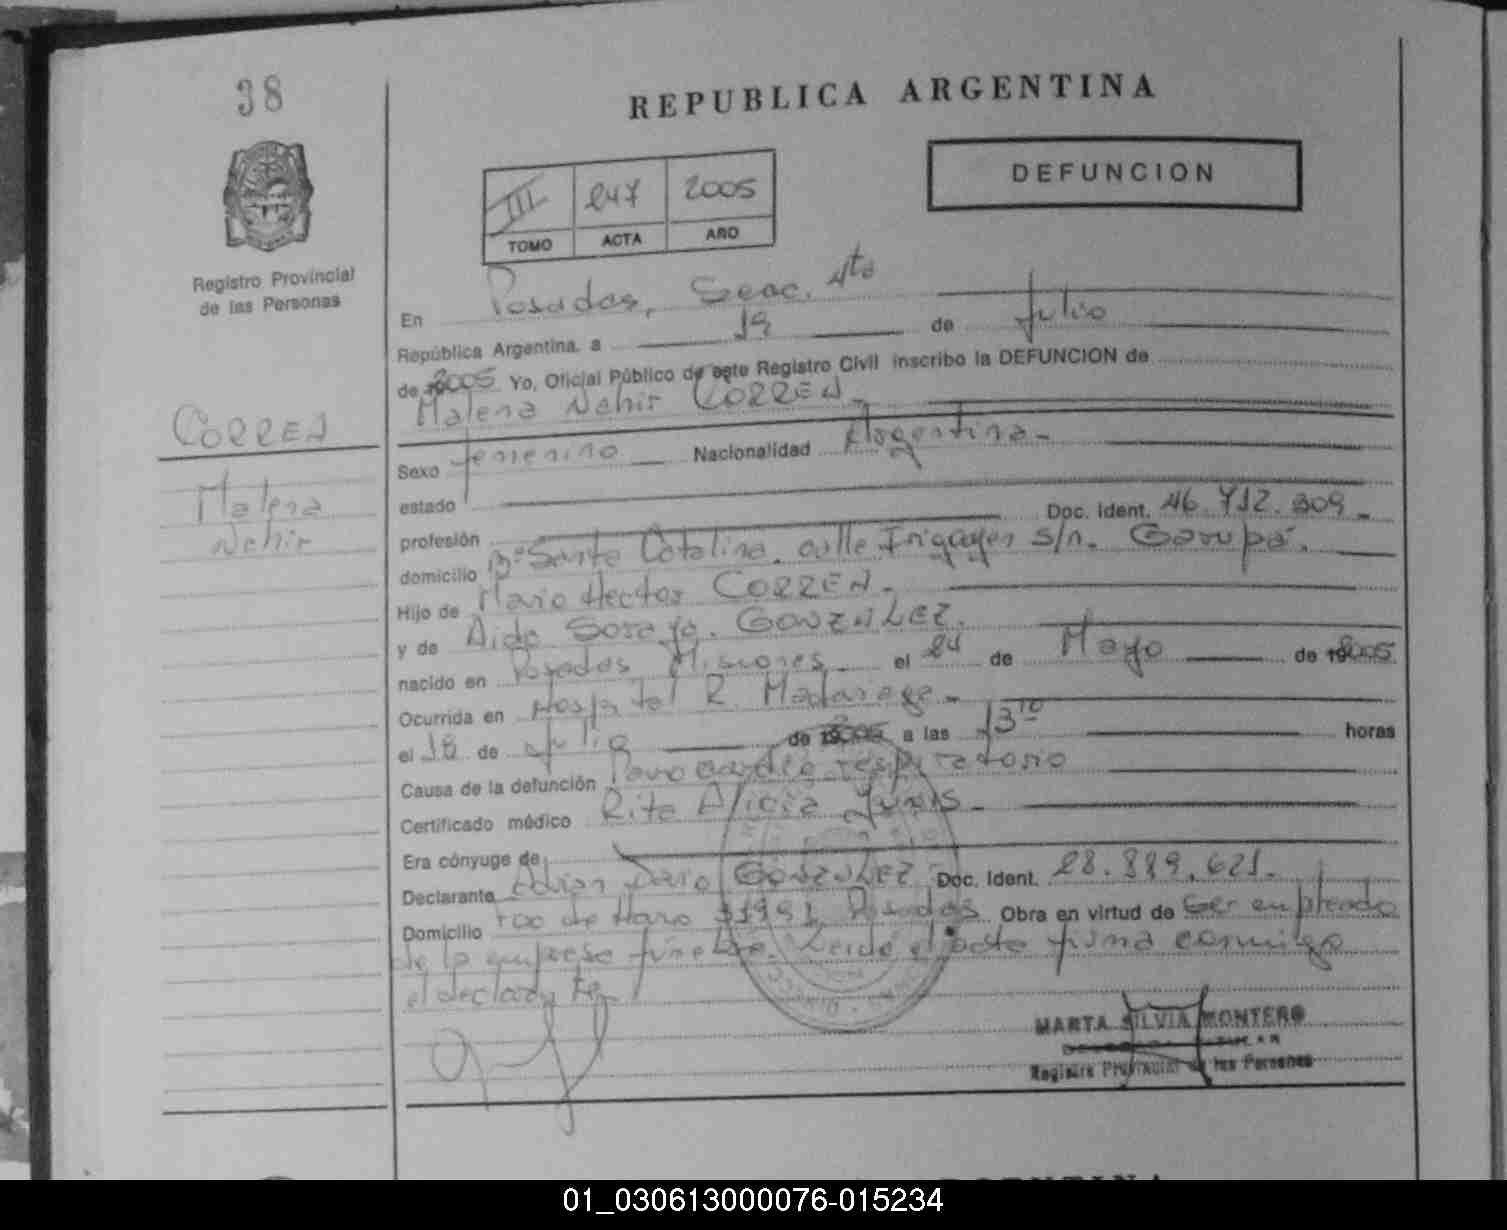 38
REPUBLICA ARGENTINA
DEFUNCION
III 247 2005
TOMO ACTA AÑO
Registro Provincial
de las Personas
En Posadas, Secc. 4ta
República Argentina, a 19 de Julio
de 2005 Yo, Oficial Público de este Registro Civil inscribo la DEFUNCION de
Malena Nahir CORREA
CORREA
Malena
Nahir
Sexo femenino Nacionalidad Argentina
estado
profesión Doc. Ident. 46.712.309
domicilio Bº Santa Catalina, calle Irigoyen s/n. Garupá.
Hijo de Mario Hector CORREA
y de Aida Soraya GONZALEZ.
nacido en Posadas Misiones el 24 de Mayo de 2005
Ocurrida en Hospital R. Madariaga
el 18 de Julio de 2005 a las 13 10 horas
Causa de la defunción Paro cardio respiratorio
Certificado médico Rita Alicia
Era cónyuge de
Declarante Adrian Dario GONZALEZ Doc. Ident. 28.889.621
Domicilio de Haro Posadas Obra en virtud de Ser empleado
de la empresa fúnebre. Leida el acta firma conmigo
el declarante
MARTA SILVIA MONTERO
Registro Provincial de las Personas
01_030613000076-015234